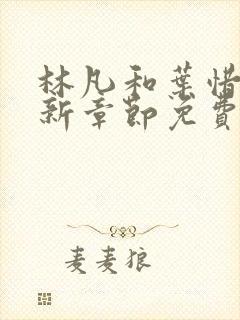 林凡和葉惜
新章節免費
麦麦狼